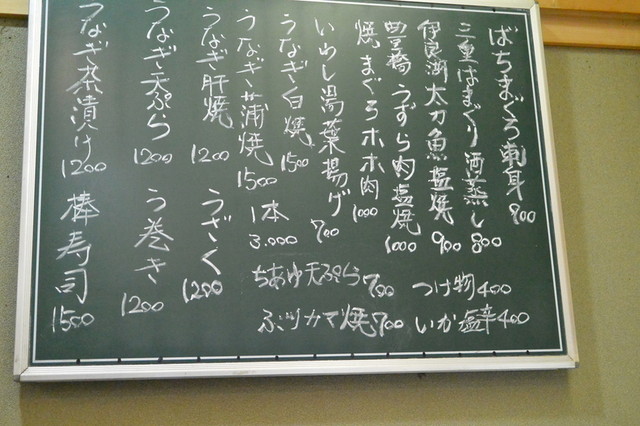 ばちまぐろ刺身 900
三重はまぐり酒蒸し 800
伊良湖太刀魚塩焼 900
豊橋うずら肉塩焼 1000
焼まぐろホホ肉 1000
いわし湯葉揚げ 700
うなぎ白焼 1500
うなぎ蒲焼 1500
1本 3.000
うなぎ肝焼 1200
うざく 1200
うなぎ天ぷら 1200
う巻き 1200
うなぎ茶漬け 1200
棒寿司 1500
ちあゆ天ぷら 700
ぶりカマ焼 700
つけ物 400
いか塩辛 400